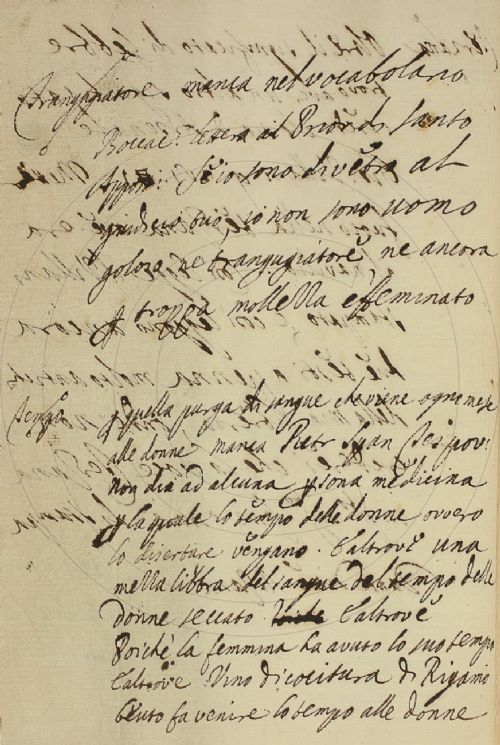 Trangugiatore. manca nel vocabolario
Boccac: lettera al Prior di Santo
Appos: Se io sono di vetro al
giudicio tuo, io non sono uomo
goloso ne trangugiatore, ne ancora
p troppa mollezza effeminato
Tempo p quella purga di sangue che viene ogne mese
alle donne manca Pietr Span Tes pov:
non dia ad alcuna psona medicina
p la quale lo tempo delle donne ovvero
lo disertare vengano. Ealtrove una
mezza libbra del sangue del tempo delle
donne seccato Ealtrove
Poiche la femmina ha avuto lo suo tempo
Ealtrove Vino di cocitura di Rigamo
beuto fa venire lo tempo alle donne